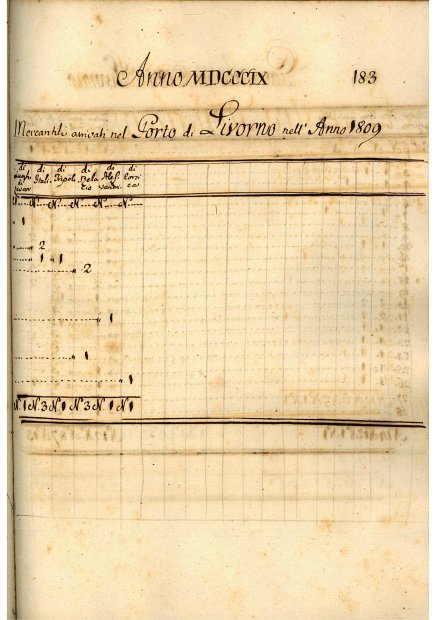 Anno MDCCCIX 183
Mercantili arrivati nel Porto di Livorno nell' Anno 1809
di di di di di di
Itali. Tripoli Alef. Corsi
ca
N.... N.... N.... N.... N....
1
2
1 1
2
1
1
1
N. 1 N. 3 N. 1 N. 3 N. 1 N. 1